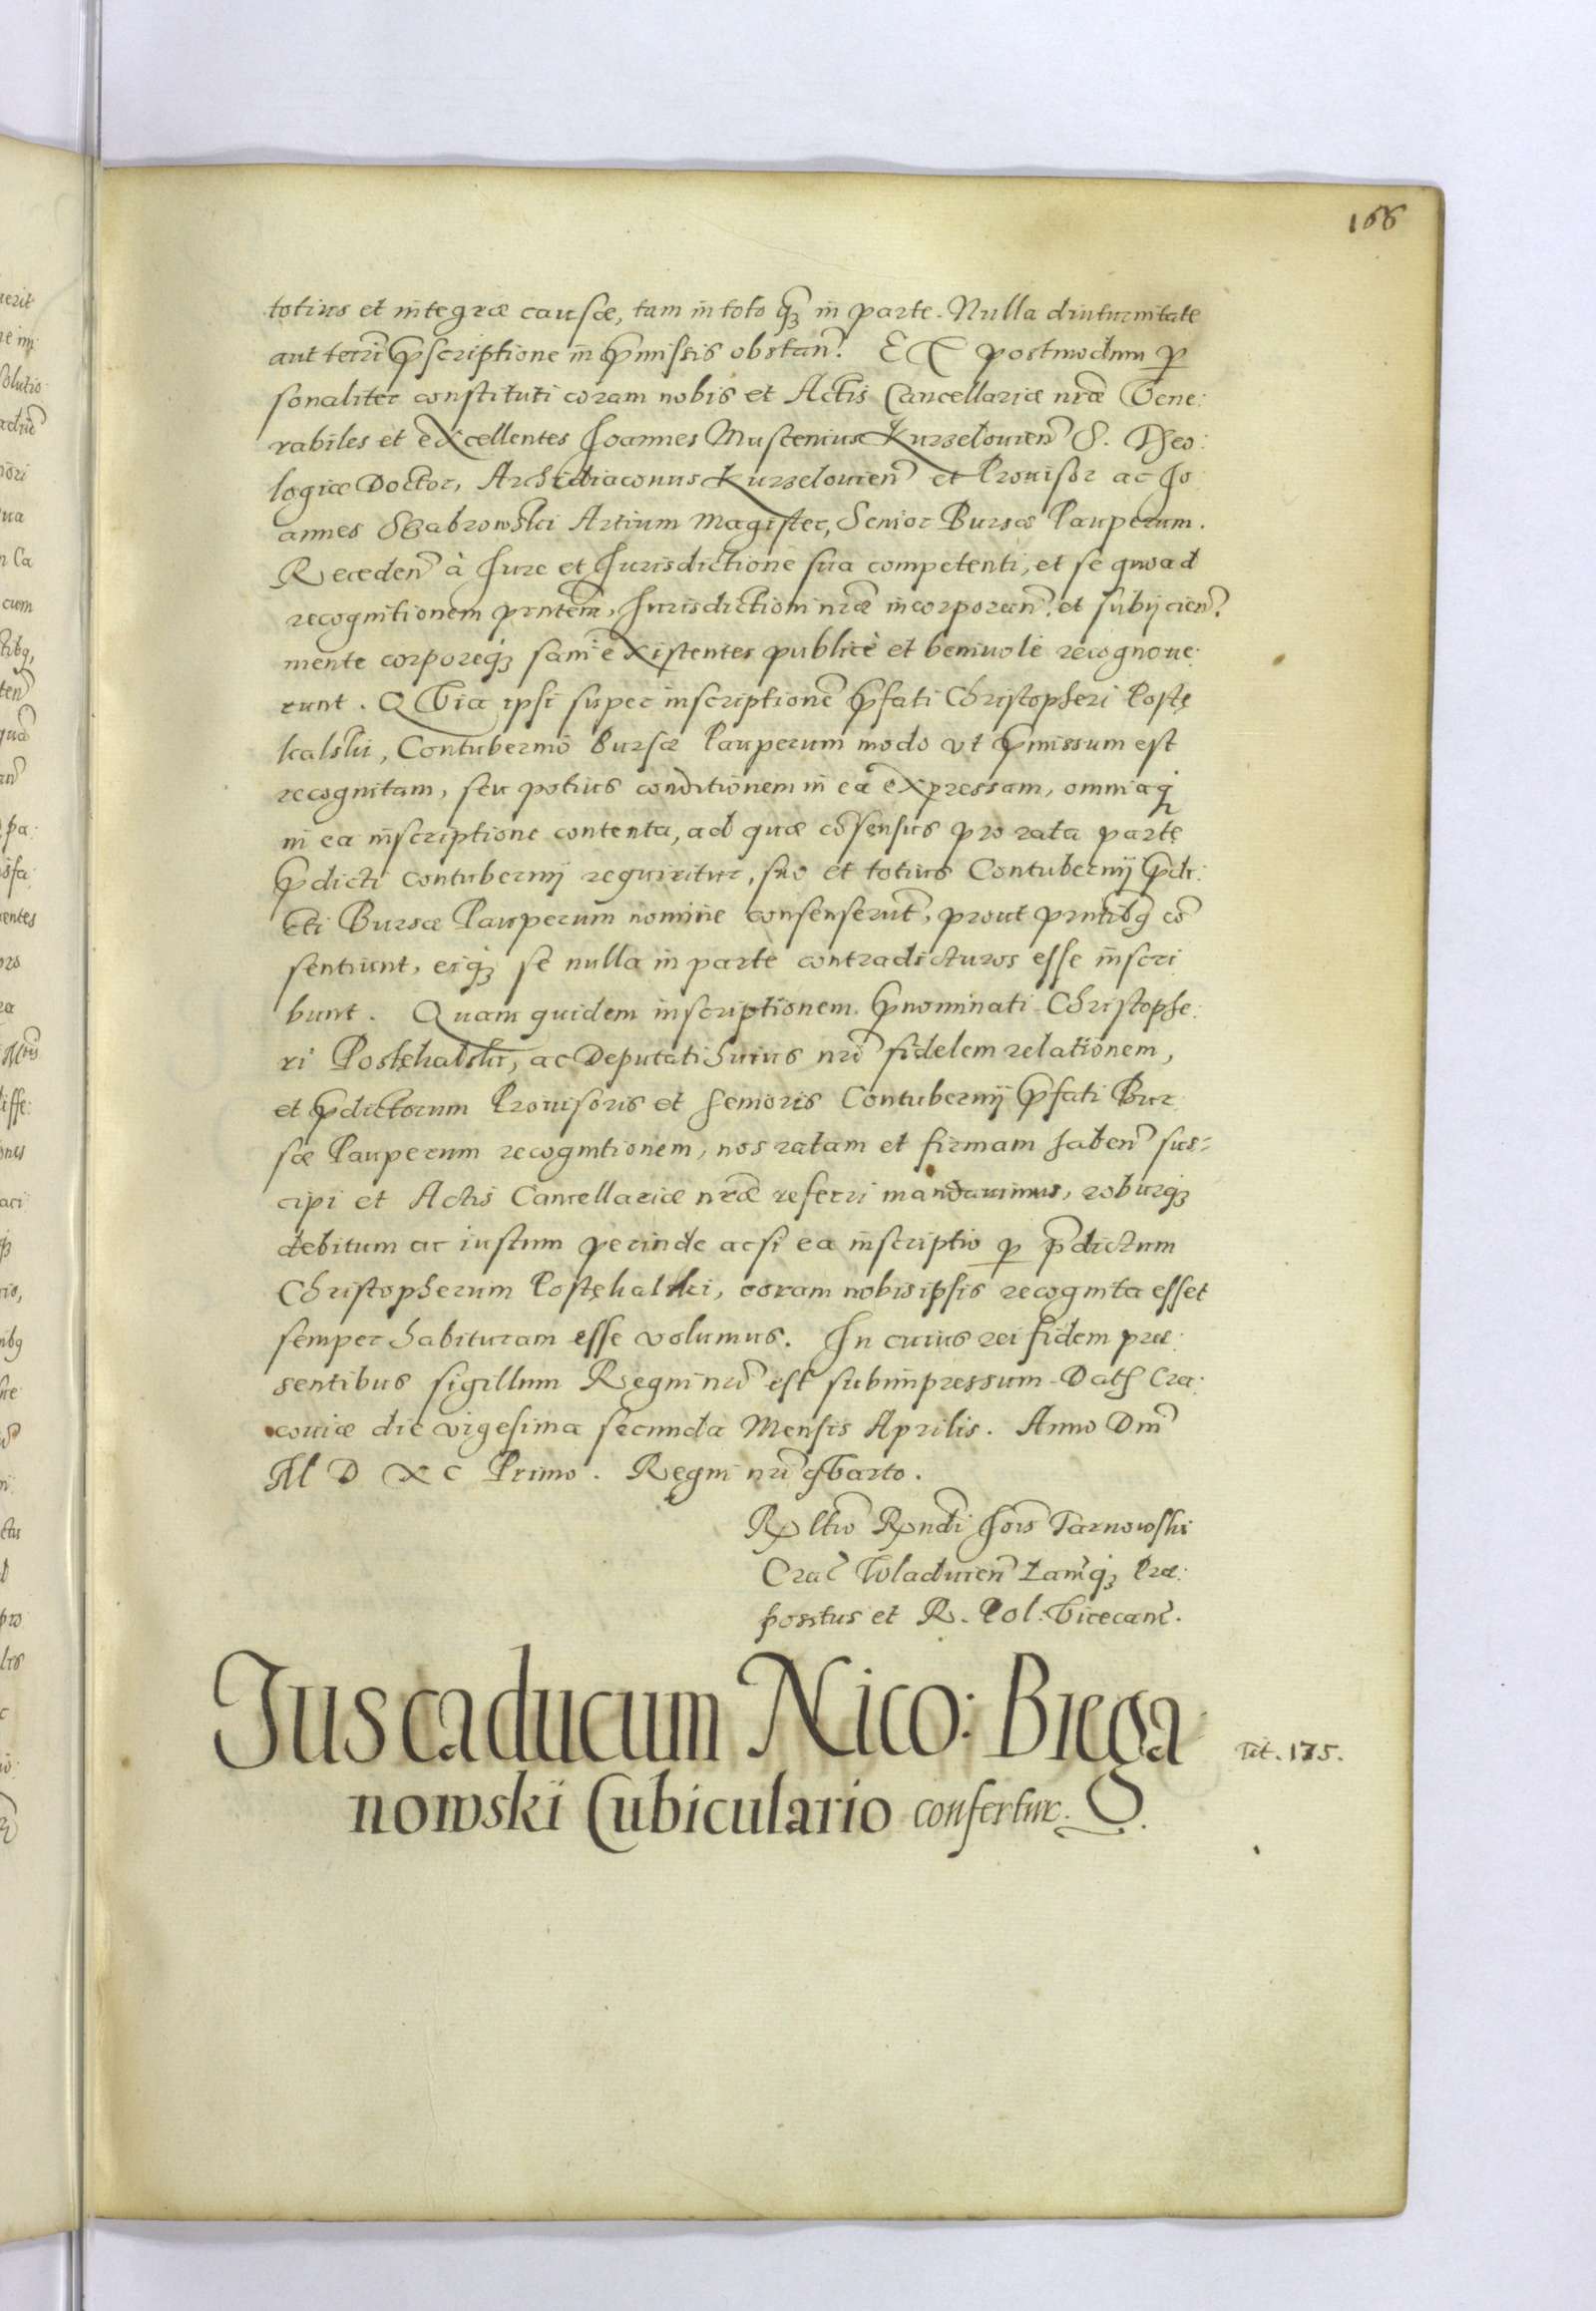 166
totius et integræ causæ, tam in toto q̃ȝ in parte. Nulla diuturnitate
aut terrẽ p̃scriptione in p̃missis obstan̄. ET postmodum p̱
sonaliter constituti coram nobis et Actis Cancellariæ nr̃æ Vene:
rabiles et eXcellentes Joannes Muscenius Kurzelouien̄ S. Theo:
logiæ Doctor, Archidiaconus Kurzelouien̄ et Prouisor ac Jo
annes Szabrowski Artium Magister, Senior Bursæ Pauperum.
Receden̄ à Jure et Jurisdictione sua competenti, et se quoad
recognitionem pn̄tem, Jurisdictioni nr̃æ incorporan̄. et subijcien̄.
mente corporeq́ȝ sani eXistentes publicè et beniuolè recognoue:
runt. QVia ipsi super inscriptionē p̃fati Christopheri Postę
kalski, Contubernio Bursæ Pauperum modo vt p̃missum est
recognitam, seu potius conditionem in eâ eXpressam, omniaq́
in ea inscriptione contenta, ad quæ cōsensus pro rata partę
p̃dicti contubernij requiritur, suo et totius Contubernij p̃di:
cti Bursæ Pauperum nomine consenserunt, prout pn̄tibq̃ cō
sentiunt, eiq́ȝ se nulla in parte contradicturos esse inscri
bunt. Quam quidem inscriptionem p̃nominati Christophe:
ri Postękalski, ac Deputati huius nr̃i fidelem relationem,
et p̃dictorum Prouisoris et Senioris Contubernij p̃fati Bur
sæ Pauperum recognitionem, nos ratam et firmam haben̄ sus=
cipi et Actis Cancellariæ nr̃æ referri mandauimus, roburq́ȝ
debitum ac iustum perinde acsi ea inscriptio p̱ p̃dictum
Christopherum Postękalski, coram nobis ipsis recognita esset
semper habituram esse volumus. In cuius rei fidem præ:
sentibus sigillum Regni nr̃i est subimpressum. Dat̃ Cra:
couiæ die vigesima secunda Mensis Aprilis. Anno Dn̄i
M D XC Primo. Regni nr̃i qVarto.
Rel̃tio Rn̄di Jois Tarnowski
Crac̃ Wladuien̄ Lanq́ȝ Præ:
positus et R. Pol: Vicecanc̃.
Jus caducum Nico: Biega
nowski Cubiculario confertur.
Tit. 175.